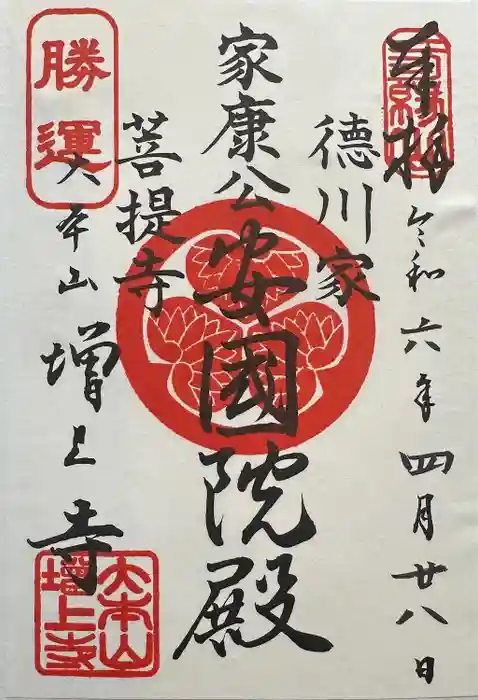 奉拝
令和六年四月廿八日
徳川家
家康公
安國院殿
菩提寺
勝運
大本山
増上寺
大本山
増上寺